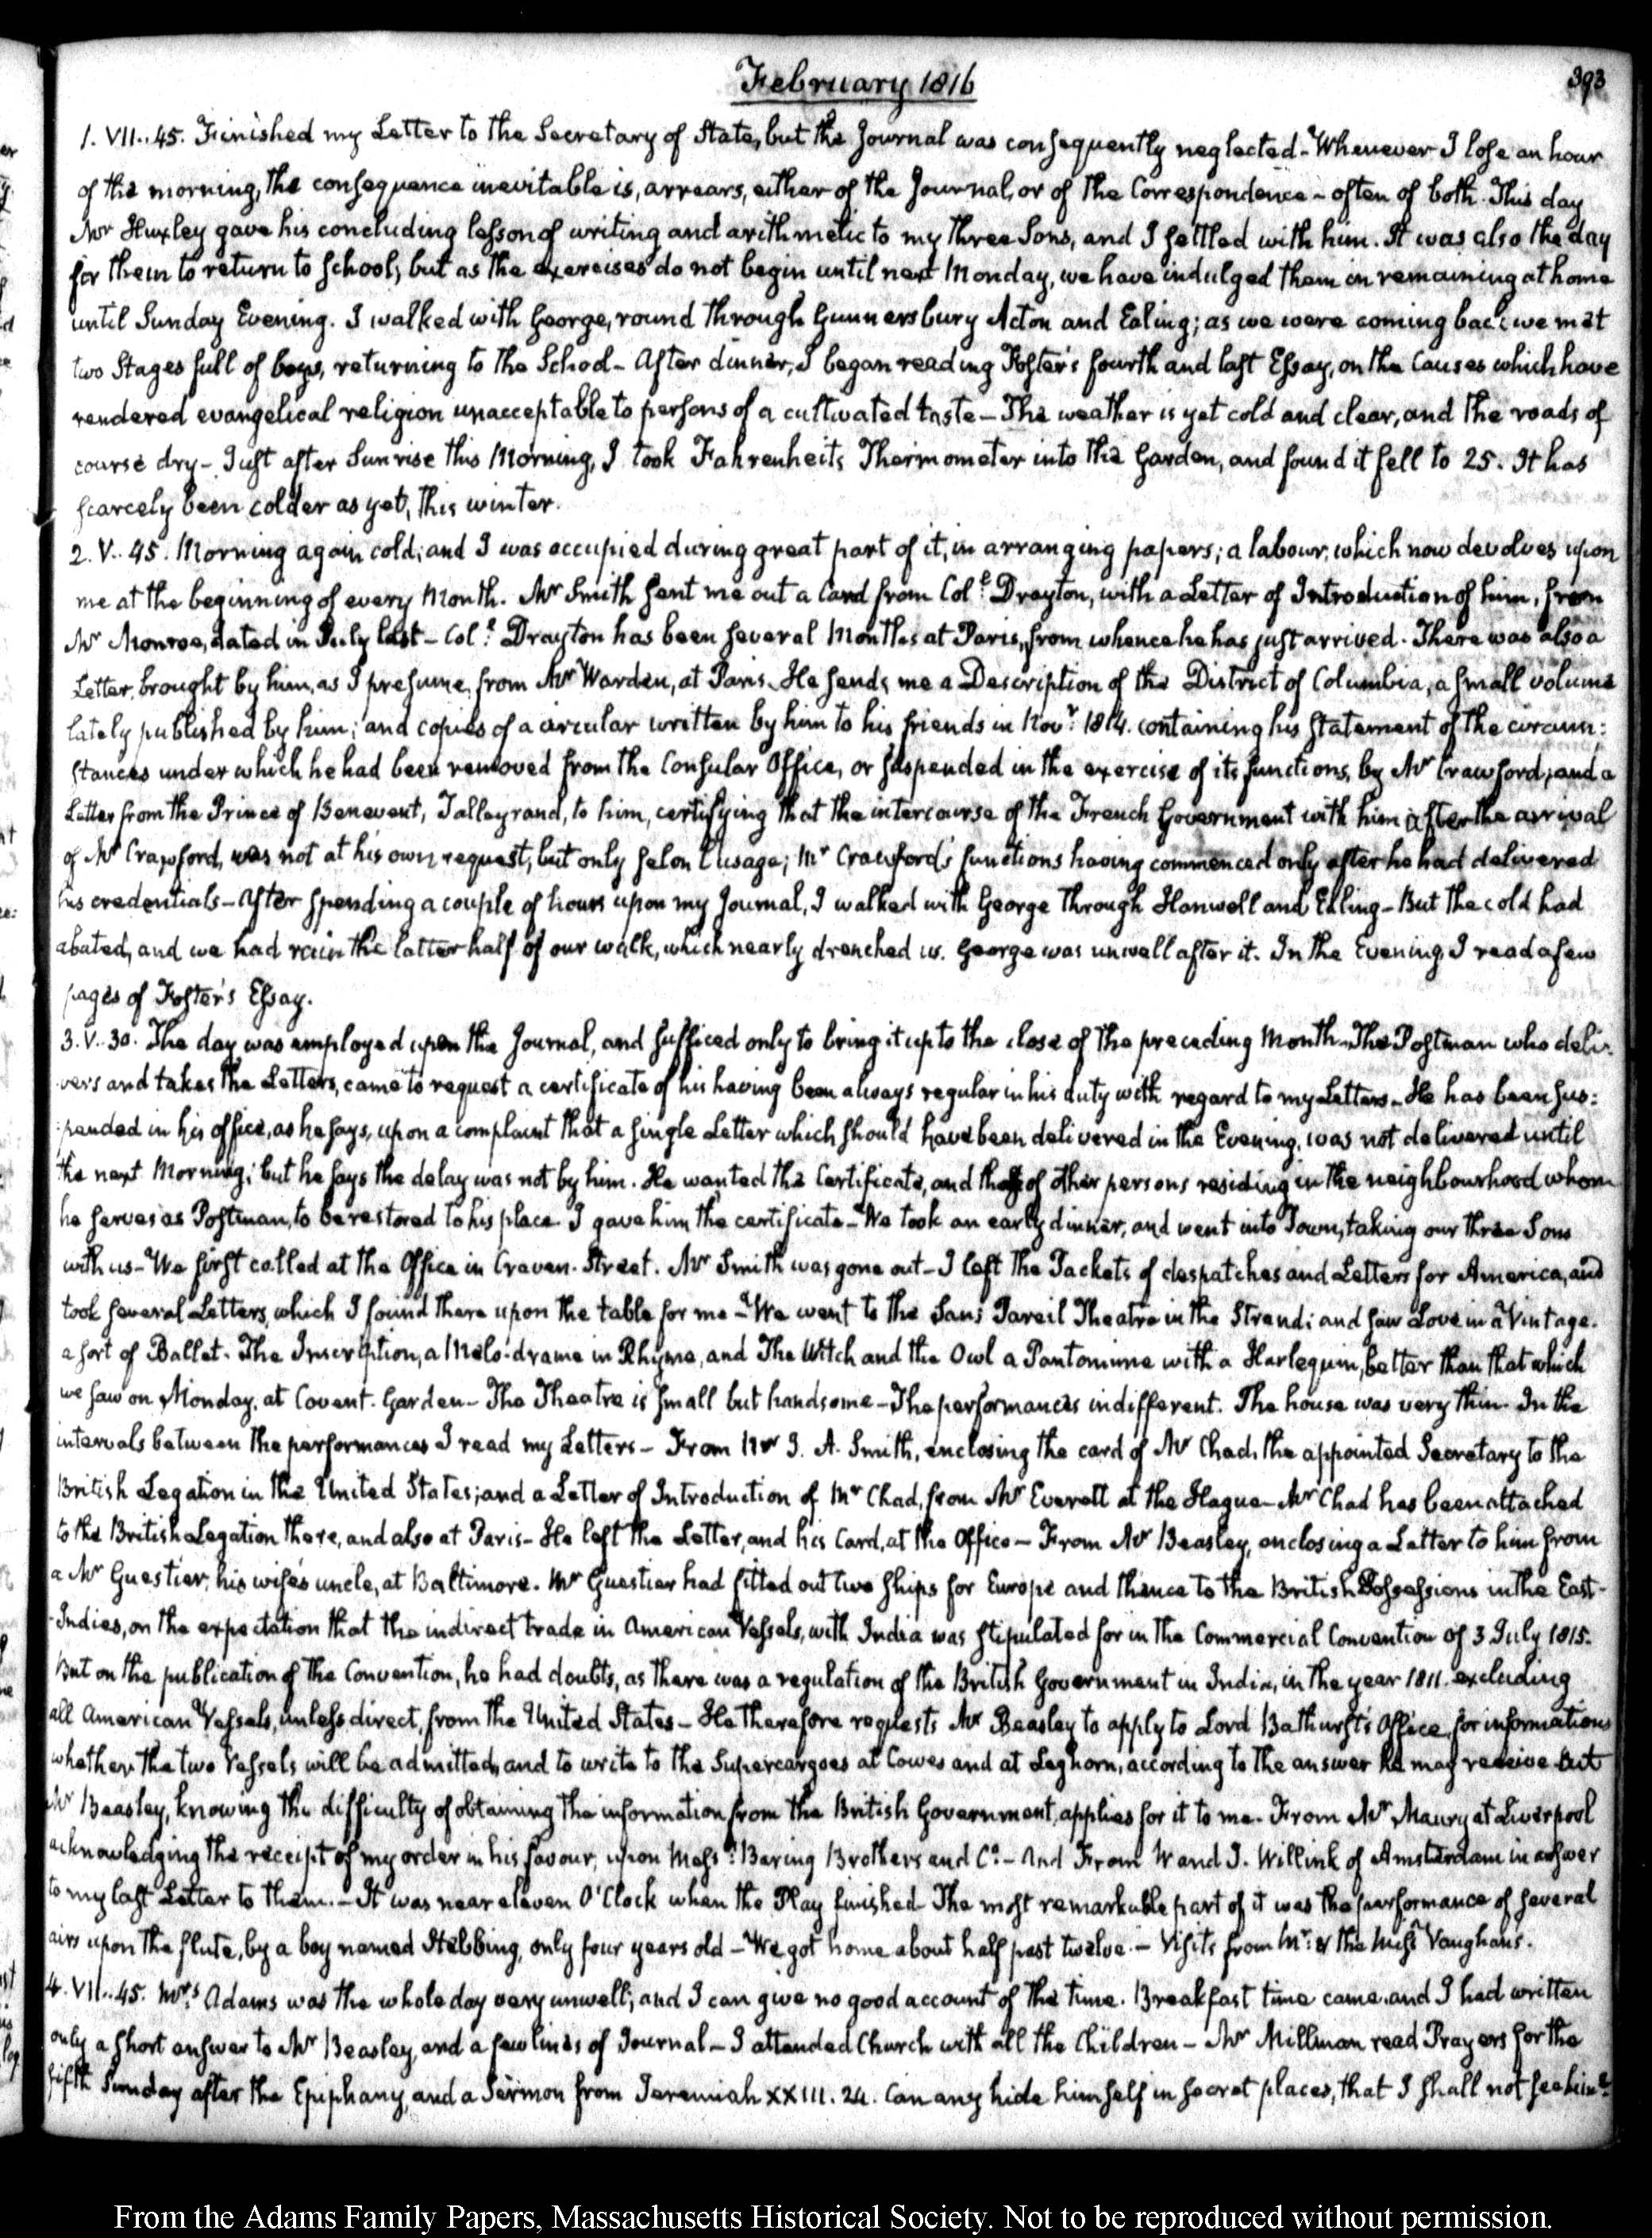 February 1816
393
1. VII..45. Finished my Letter to the Secretary of State, but the Journal was consequently neglected- Whenever I lose an hour
of the morning, the consequence inevitable is, arrears, either of the Journal, or of the Correspondence - often of both. This day
Mr Huxley gave his concluding lesson of writing and arithmetic to my three Sons, and I settled with him. It was also the day
for them to return to School, but as the exercises do not begin until next Monday, we have indulged them in remaining at home
until Sunday Evening. I walked with George, round through Gunnersbury Acton and Ealing; as we were coming back we met
two Stages full of boys, returning to the School- After dinner, I began reading Foster's fourth and last Essay, on the Causes which have
rendered evangelical religion unacceptable to persons of a cultivated taste- The weather is yet cold and clear, and the roads of
course dry- Just after Sunrise this Morning, I took Fahrenheits Thermometer into the Garden, and found it fell to 25. It has
scarcely been colder as yet, this winter.
2. V..45. Morning again cold; and I was occupied during great part of it, in arranging papers; a labour, which now devolves upon
me at the beginning of every Month. Mr Smith sent me out a Card from Coll. Drayton, with a Letter of Introduction of him, from
Mr Monroe, dated in July last- Coll. Drayton has been several Months at Paris, from whence he has just arrived. There was also a
Letter, brought by him, as I presume, from Mr Warden, at Paris. He sends me a Description of the District of Columbia, a small volume
lately published by him; and copies of a circular written by him to his friends in Novr. 1814. containing his statement of the circum:
stances under which he had been removed from the Consular Office, or suspended in the exercise of its functions, by Mr Crawford; and a
Letter from the Prince of Benevent, Talleyrand, to him, certifying that the intercourse of the French Government with him after the arrival
of Mr Crawford, was not at his own request, but only selon l'usage; Mr Crawford's functions having commenced only after he had delivered
his credentials- After spending a couple of hours upon my Journal, I walked with George through Hanwell and Ealing- But the cold had
abated, and we had rain the latter half of our walk, which nearly drenched us. George was unwell after it. In the Evening I read a few
pages of Foster's Essay.
3. V..30. The day was employed upon the Journal, and sufficed only to bring it up to the close of the preceding Month- The Postman who deli:
vers and takes the Letters, came to request a certificate of his having been always regular in his duty with regard to my Letters- He has been sus:
:pended in his office, as he says, upon a complaint that a single Letter which should have been delivered in the Evening, was not delivered until
the next Morning; but he says the delay was not by him. He wanted the Certificate, and those of other persons residing in the neighbourhood whom
he serves as Postman, to be restored to his place. I gave him the certificate- We took an early dinner, and went into Town, taking our three Sons
with us- We first called at the Office in Craven-Street. Mr Smith was gone out- I left the Packets of despatches and Letters for America, and
took several Letters, which I found there upon the table for me- We went to the Sans Pareil Theatre in the Strand; and saw Love in a Vintage.
a sort of Ballet. The Inscription, a Melo-drame in Rhyme, and The Witch and the Owl a Pantomime with a Harlequin, better than that which
we saw on Monday, at Covent-Garden- The Theatre is small but handsome- The performances indifferent. The house was very thin. In the
intervals between the performances I read my Letters- From Mr J. A. Smith, enclosing the card of Mr Chad, the appointed Secretary to the
British Legation in the United States; and a Letter of Introduction of Mr Chad, from Mr Everett at the Hague- Mr Chad has been attached
to the British Legation there, and also at Paris- He left the Letter, and his Card, at the Office- From Mr Beasley, enclosing a Letter to him from
a Mr Guestier, his wife's uncle, at Baltimore. Mr Guestier had fitted out two ships for Europe and thence to the British Possessions in the East-
-Indies, on the expectation that the indirect trade in American Vessels, with India was stipulated for in the Commercial Convention of 3 July 1815.
But on the publication of the Convention, he had doubts, as there was a regulation of the British Government in India, in the year 1811. excluding
all American Vessels, unless direct, from the United States- He therefore requests Mr Beasley to apply to Lord Bathurst's Office for information
whether the two Vessels will be admitted, and to write to the Supercargoes at Cowes and at Leghorn, according to the answer he may receive- But
Mr Beasley, knowing the difficulty of obtaining the information from the British Government, applies for it to me. From Mr Maury at Liverpool
acknowledging the receipt of my order in his favour, upon Messrs: Baring Brothers and Co.- And From W and J. Willink of Amsterdam in answer
to my last Letter to them.- It was near eleven O'Clock when the Play finished- The most remarkable part of it was the performance of several
airs upon the flute, by a boy named Stebbing, only four years old- We got home about half past twelve.- Visits from Mr: & the Misses Vaughans.
4. VII..45. Mrs Adams was the whole day very unwell; and I can give no good account of the time. Breakfast time came and I had written
only a short answer to Mr Beasley, and a few lines of Journal- I attended Church with all the Children- Mr Millman read Prayers for the
fifth Sunday after the Epiphany, and a Sermon from Jeremiah XXIII. 24. Can any hide himself in secret places, that I shall not see him?
From the Adams Family Papers, Massachusetts Historical Society. Not to be reproduced without permission.